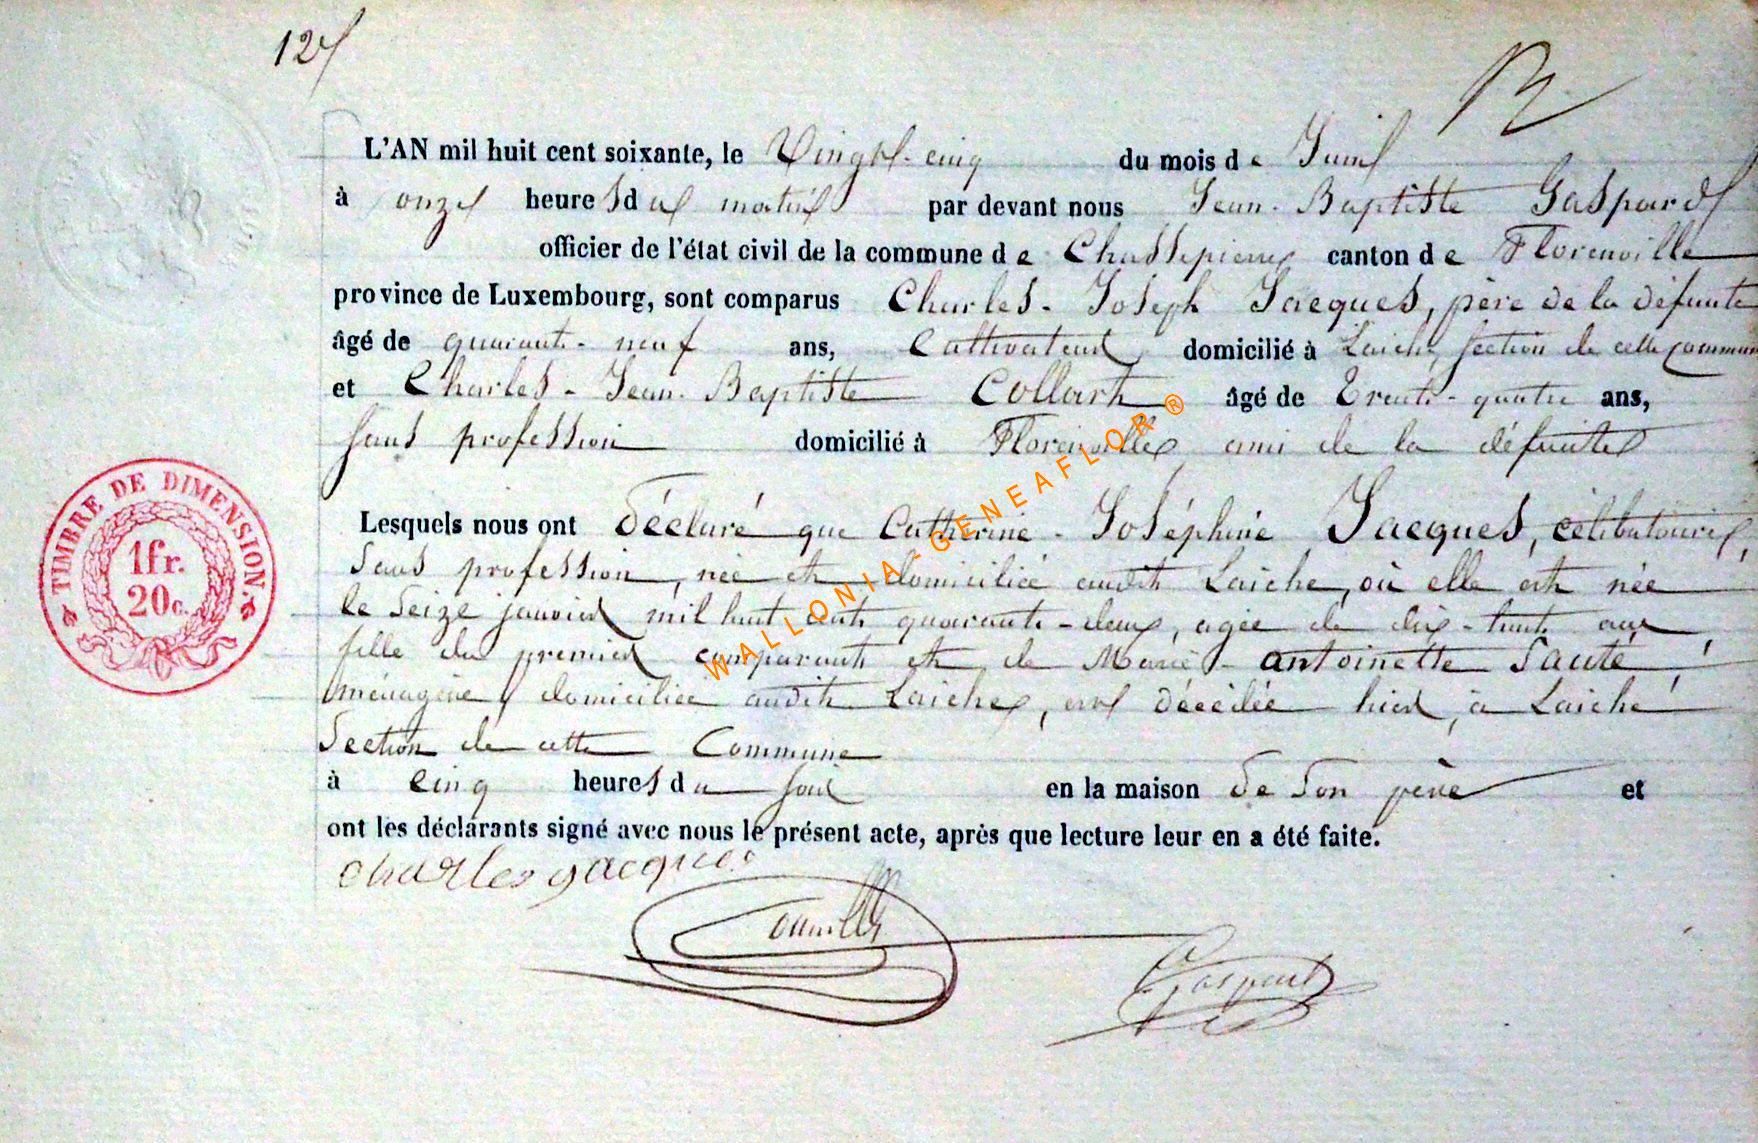 12
L'AN mil huit cent soixante, le Vingt-cinq du mois de Juin
à onze heures du matin par devant nous Jean-Baptiste Gaspard
officier de l'état civil de la commune de Chassepierre canton de Florenville
province de Luxembourg, sont comparus Charles-Joseph Jacques, père de la défunte
âgé de quarante-neuf ans, Cultivateur domicilié à Laiche, section de cette commune
et Charles-Jean-Baptiste Collart âgé de Trente-quatre ans,
sans profession domicilié à Florenville ami de la défunte
Lesquels nous ont déclaré que Catherine-Joséphine Jacques, célibataire,
sans profession, née et domiciliée audit Laiche, où elle est née
le seize janvier mil huit cent quarante-deux, agée de dix-huit ans,
fille du premier comparant et de Marie-antoinette Sauté,
ménagère, domiciliée audit Laiche, est décédée hier, à Laiche
Section de cette Commune
à cinq heures du soir en la maison de son père et
ont les déclarants signé avec nous le présent acte, après que lecture leur en a été faite.
charles jacques
Gaspard
TIMBRE DE DIMENSION.
1fr.
20c.
WALLONIA-GENEAFLOR®